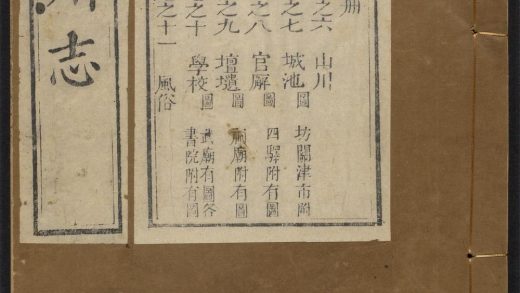 册
之六 山川
之七 城池圖 坊關津市附
之八 官廨圖 四驛附有圖
之九 壇壝圖 祠廟附有圖
之十 學校圖 武廟有圖各書院附有圖
之十一 風俗
志